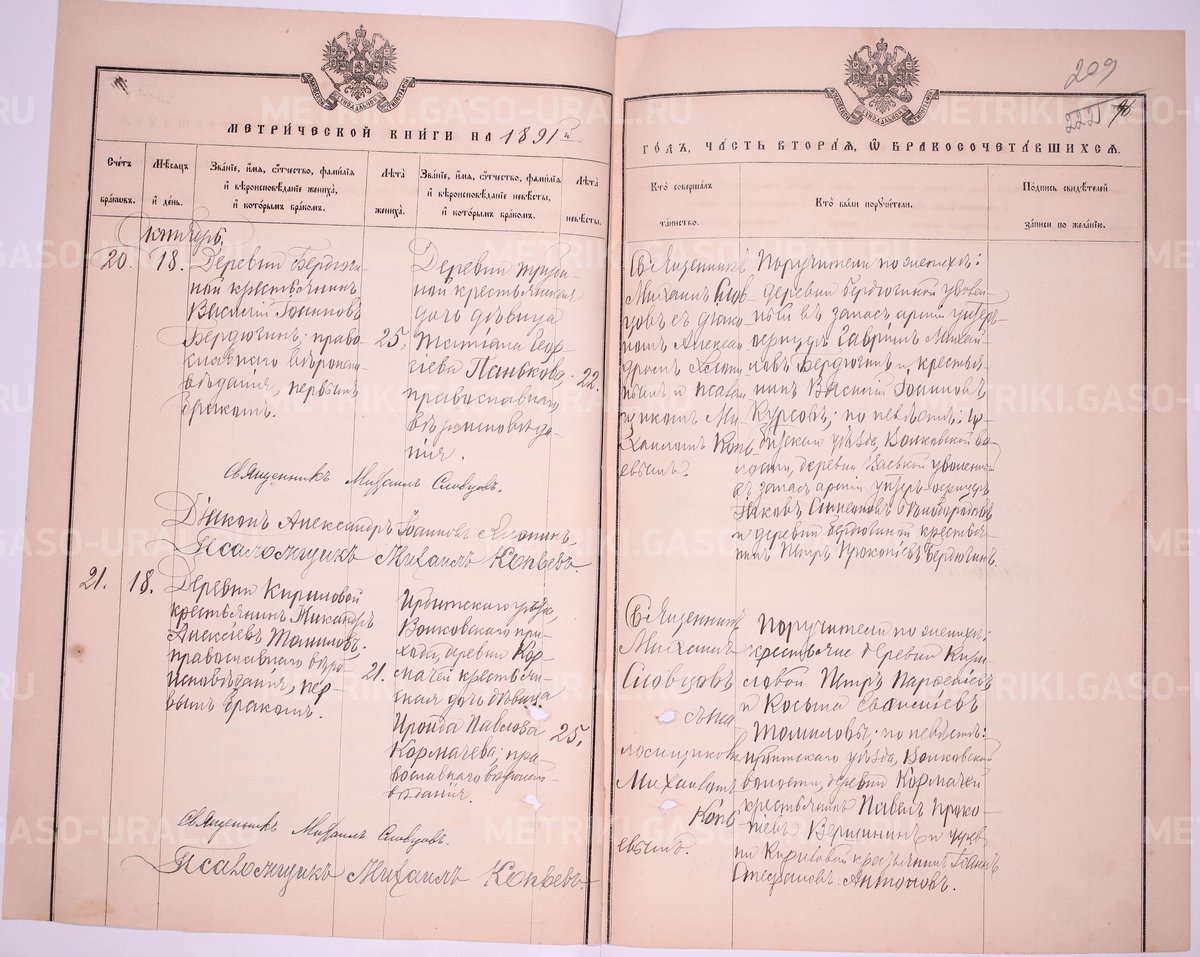 209
222
МЕТРИЧЕСКОЙ КНИГИ НА 1891й
ГОДЪ, ЧАСТЬ ВТОРАЯ, Ѡ БРАКОСОЧЕТАВШИХСЯ.
Счетъ браковъ.
Мѣсяцъ и день.
Званіе, имя, отчество, фамилія
и вѣроисповѣданіе жениха,
и которымъ бракомъ.
Лѣта жениха.
Званіе, имя, отчество, фамилія
и вѣроисповѣданіе невѣсты,
и которымъ бракомъ.
Лѣта невѣсты.
Кто совершалъ
таинство.
Кто были поручители.
Подпись свидѣтелей
записи по желанію.
Октябрь
20. 18.
Деревни Бердюги-
ной крестьянинъ
Василій Іоанновъ
Бердюгинъ; право-
славнаго вѣроиспо-
вѣданія, первымъ
бракомъ.
25.
Деревни
ной крестьянская
дочь дѣвица
Татіана Геор-
гіева Панькова,
православнаго
вѣроисповѣда-
нія.
22.
Священникъ
Михаилъ Слов-
цовъ съ діако-
номъ Алексан-
дромъ
и псалом-
щикомъ Ми-
хаиломъ Копь-
евымъ.
Поручители по женихѣ:
деревни Бердюгиной уволен-
ный въ запасъ арміи унтеръ-
офицеръ Гавріилъ Михай-
ловъ Бердюгинъ и крестья-
нинъ Василій Іоанновъ
Курсовъ; по невѣстѣ: Ир-
битскаго уѣзда, Волковской во-
лости, деревни уволенный
въ запасъ арміи унтеръ-офицеръ
Яковъ Симеоновъ
и деревни Бердюгиной крестья-
нинъ Петръ Прокопіевъ Бердюгинъ.
Священникъ Михаилъ Словцовъ.
Діаконъ Александръ Іоанновъ
Псаломщикъ Михаилъ Копьевъ.
21. 18.
Деревни Кириловой
крестьянинъ Никандръ
Алексіевъ Томиловъ.
православнаго вѣро-
исповѣданія, пер-
вымъ бракомъ.
21.
Ирбитскаго уѣзда,
Волковскаго при-
хода, деревни Кор-
мачей крестьян-
ская дочь дѣвица
Ироида Павлова
Кормачева; пра-
вославнаго вѣроиспо-
вѣданія.
25.
Священникъ
Михаилъ
Словцовъ
съ пса-
ломщикомъ
Михаиломъ
Копь-
евымъ.
Поручители по женихѣ:
крестьяне деревни Кири-
ловой Петръ
и Косьма
Томиловы; по невѣстѣ:
Ирбитскаго уѣзда, Волковской
волости, деревни Кормачей
крестьянинъ Павелъ Проко-
піевъ Вершининъ и дерев-
ни Кириловой крестьянинъ Іоаннъ
Стефановъ Антоновъ.
Священникъ Михаилъ Словцовъ.
Псаломщикъ Михаилъ Копьевъ
METRIKI.GASO-URAL.RU